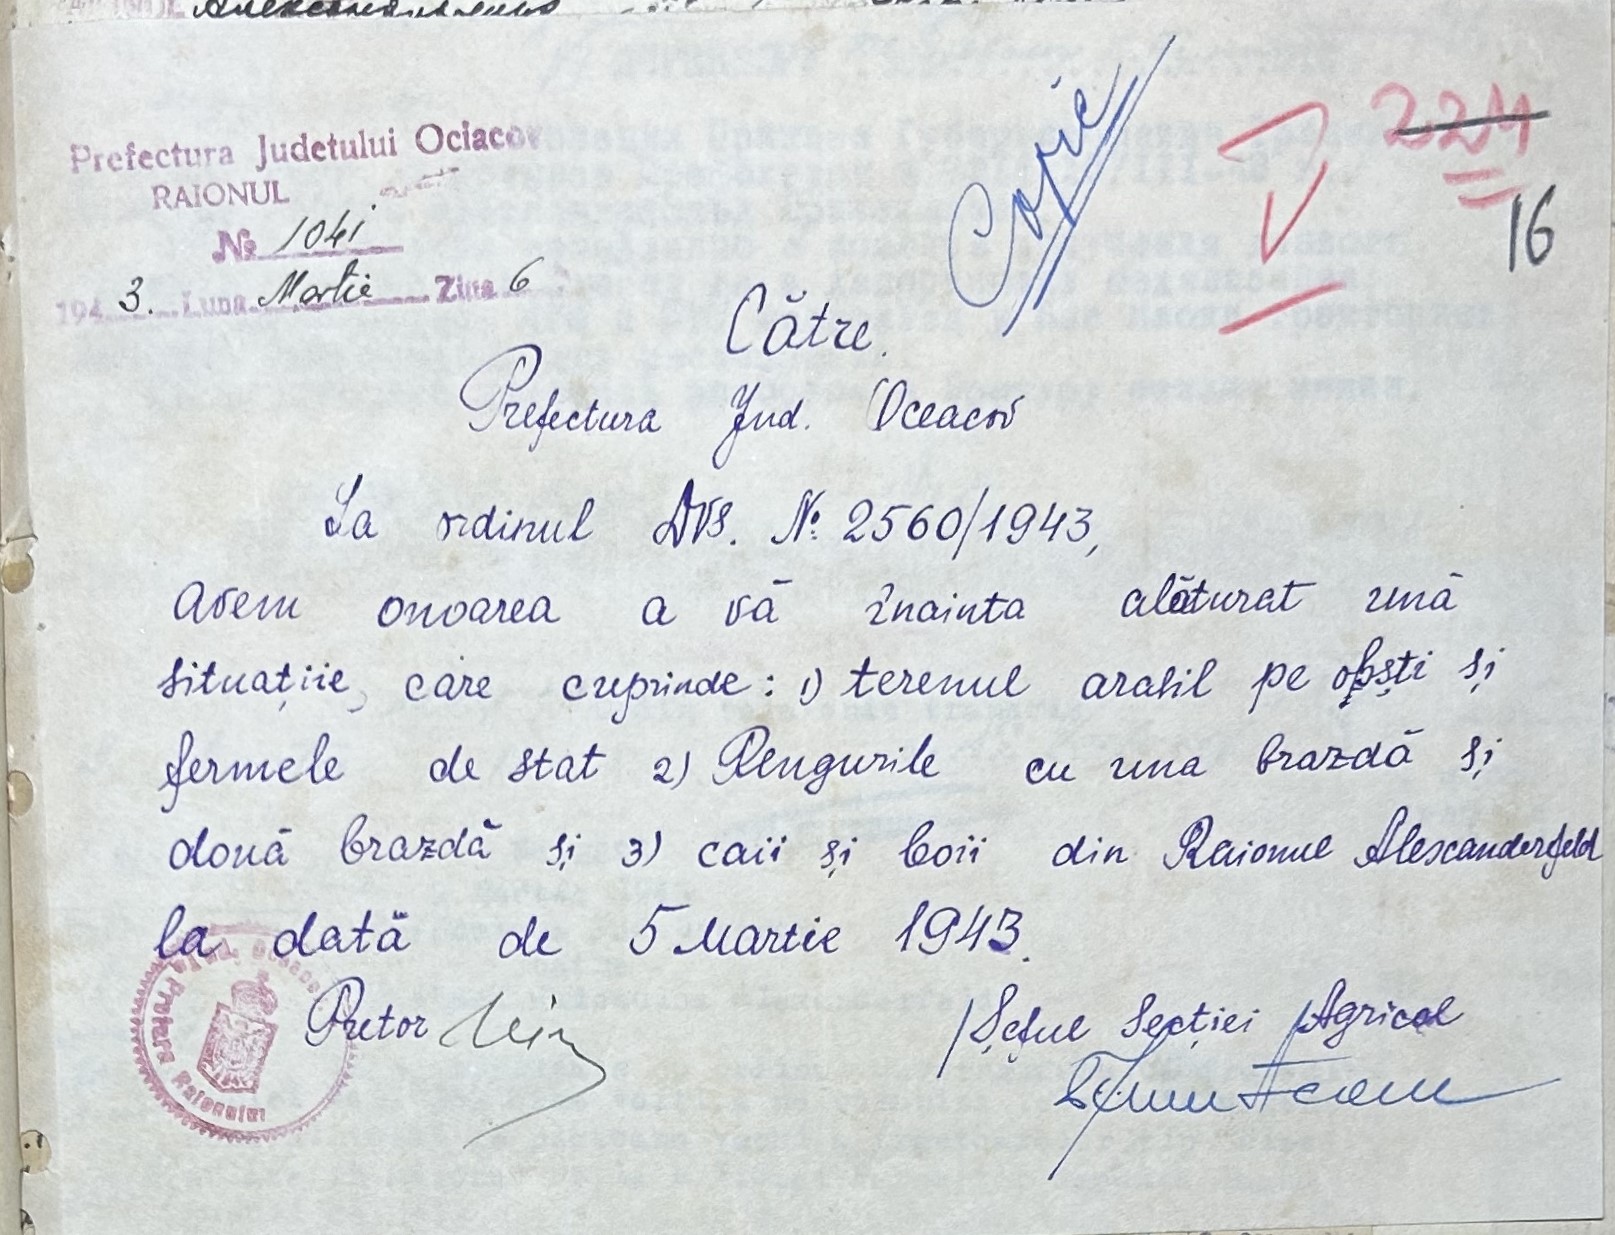 Prefectura Judetului Ociacov
RAIONUL
№ 1041
194 3. Luna Martie Ziua 6
Copie
224
16
Către
Prefectura Jud. Oceacov
La ordinul Dvs. № 2560/1943,
avem onoarea a vă înainta alăturat ună
situațiie, care cuprinde: 1) terenul arabil pe obști și
fermele de stat 2) Plengurile cu una brazdă și
două brazdă și 3) caii și boii din Raionul Alexanderfeld
la dată de 5 Martie 1943.
Pretor
/Șeful Secției Agricol
Pretura Raionului